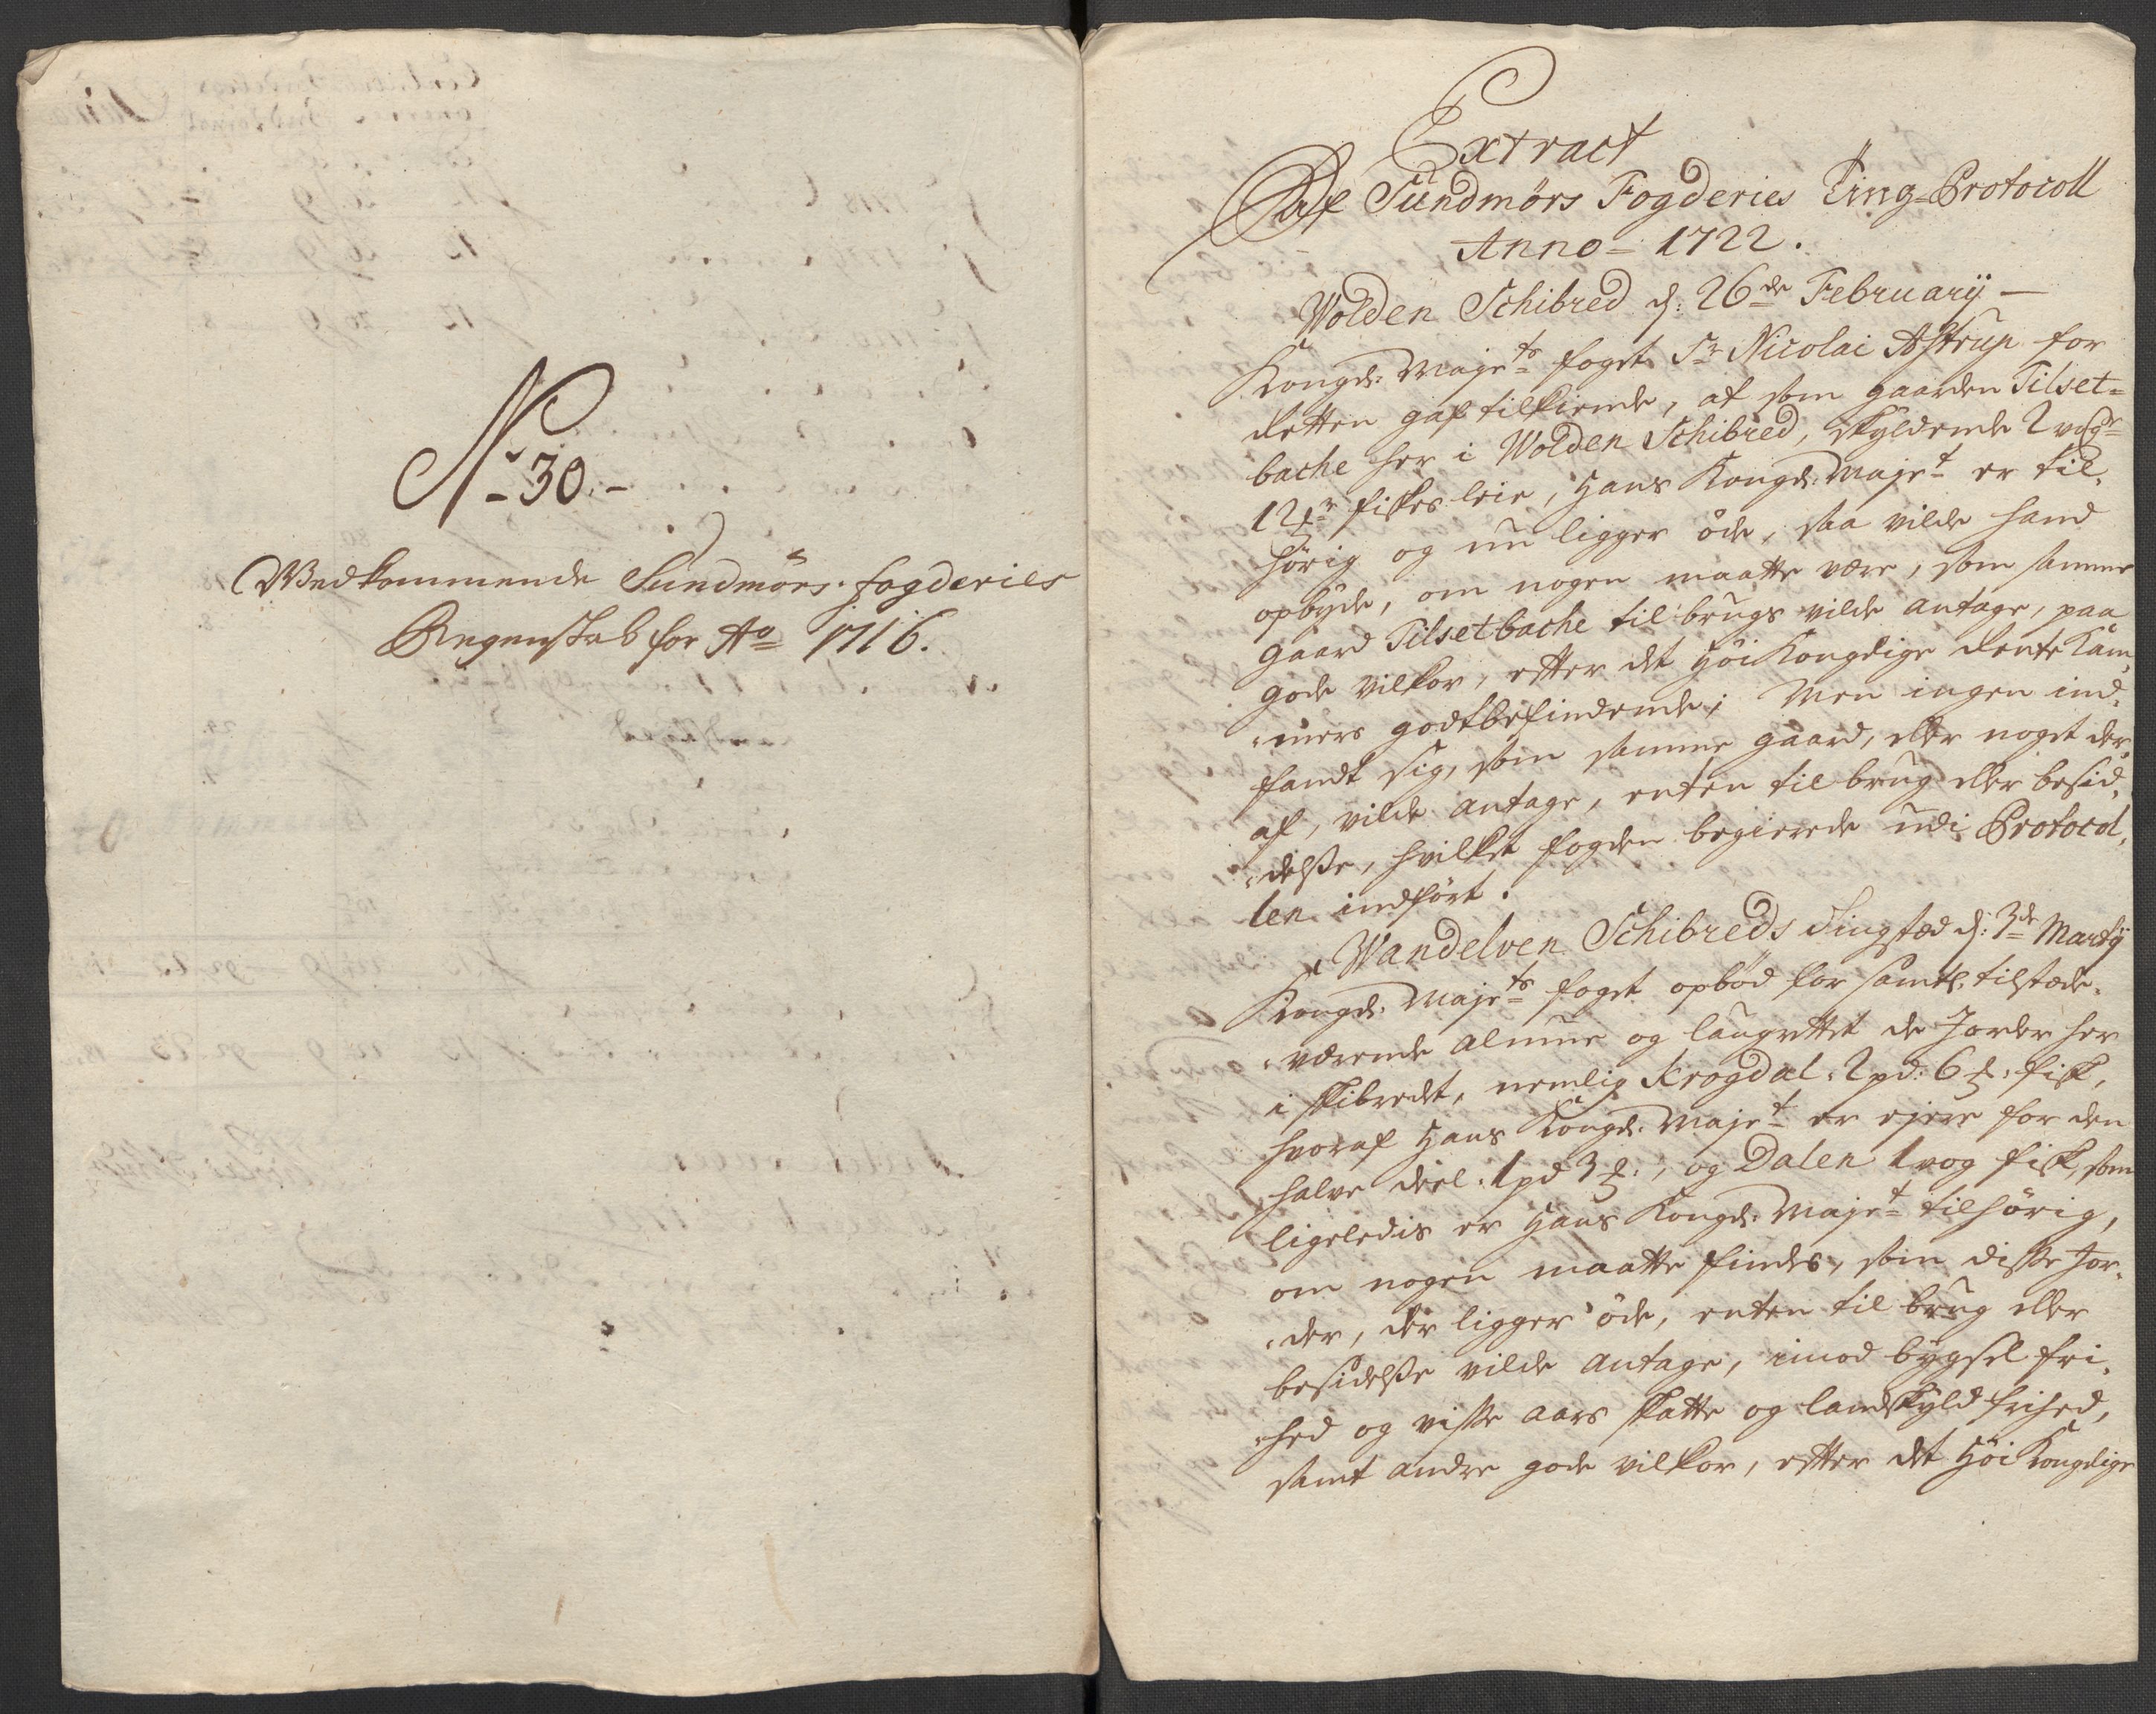 No 30.
Wedkommende Sundmörs fogderies
Regenskab for Ao 1716.
Extract
Af Sundmörs Fogderies Ting-Protocoll
Anno 1722.
Wolden Schibred d: 26de Februarij
Kongl: Majets foget Sr Nicolai Astrup for
Retten gaf tilkiende, at som gaarden Tilset-
bache her i Wolden Schibred, skyldende 2 vogr
12 mr fiskes leie, Hans Kongl: Majet er til-
hörig og nu ligger öde, saa vilde hand
opbyde, om nogen maatte være, som samme
gaard Tilsetbache til brugs vilde antage, paa
gode vilkor, efter det Höi Kongelige Rente Kam-
mers godtbefindende; Men ingen ind-
fandt sig, som samme gaard, eller noget der-
af, vilde antage, enten til brug eller besid-
delsse, hvilket fogden begierede udi Protocol-
len indfört.
Wandelven Schibreds Tingsted d: 3de Martij
Kongl: Majets foget opböd for samtl: tilstæde-
værende almue og laugrettet de Jorder her
i skibredet, nemlig Krogdal 2 pd: 6 mr: fisk,
hvoraf Hans Kongl: Majet er ejere for den
halve deel 1 pd 3 mr:, og Dalen 1 vog fisk, som
ligeledis er Hans Kongl: Majet tilhörig,
om nogen maatte findes, som disse Jor-
der, der ligger öde, enten til brug eller
besidelsse vilde antage, imod bygsel fri-
hed og visse aars skatte og landskyld frihed,
samt andre gode vilkor, efter det Höi Kongelige